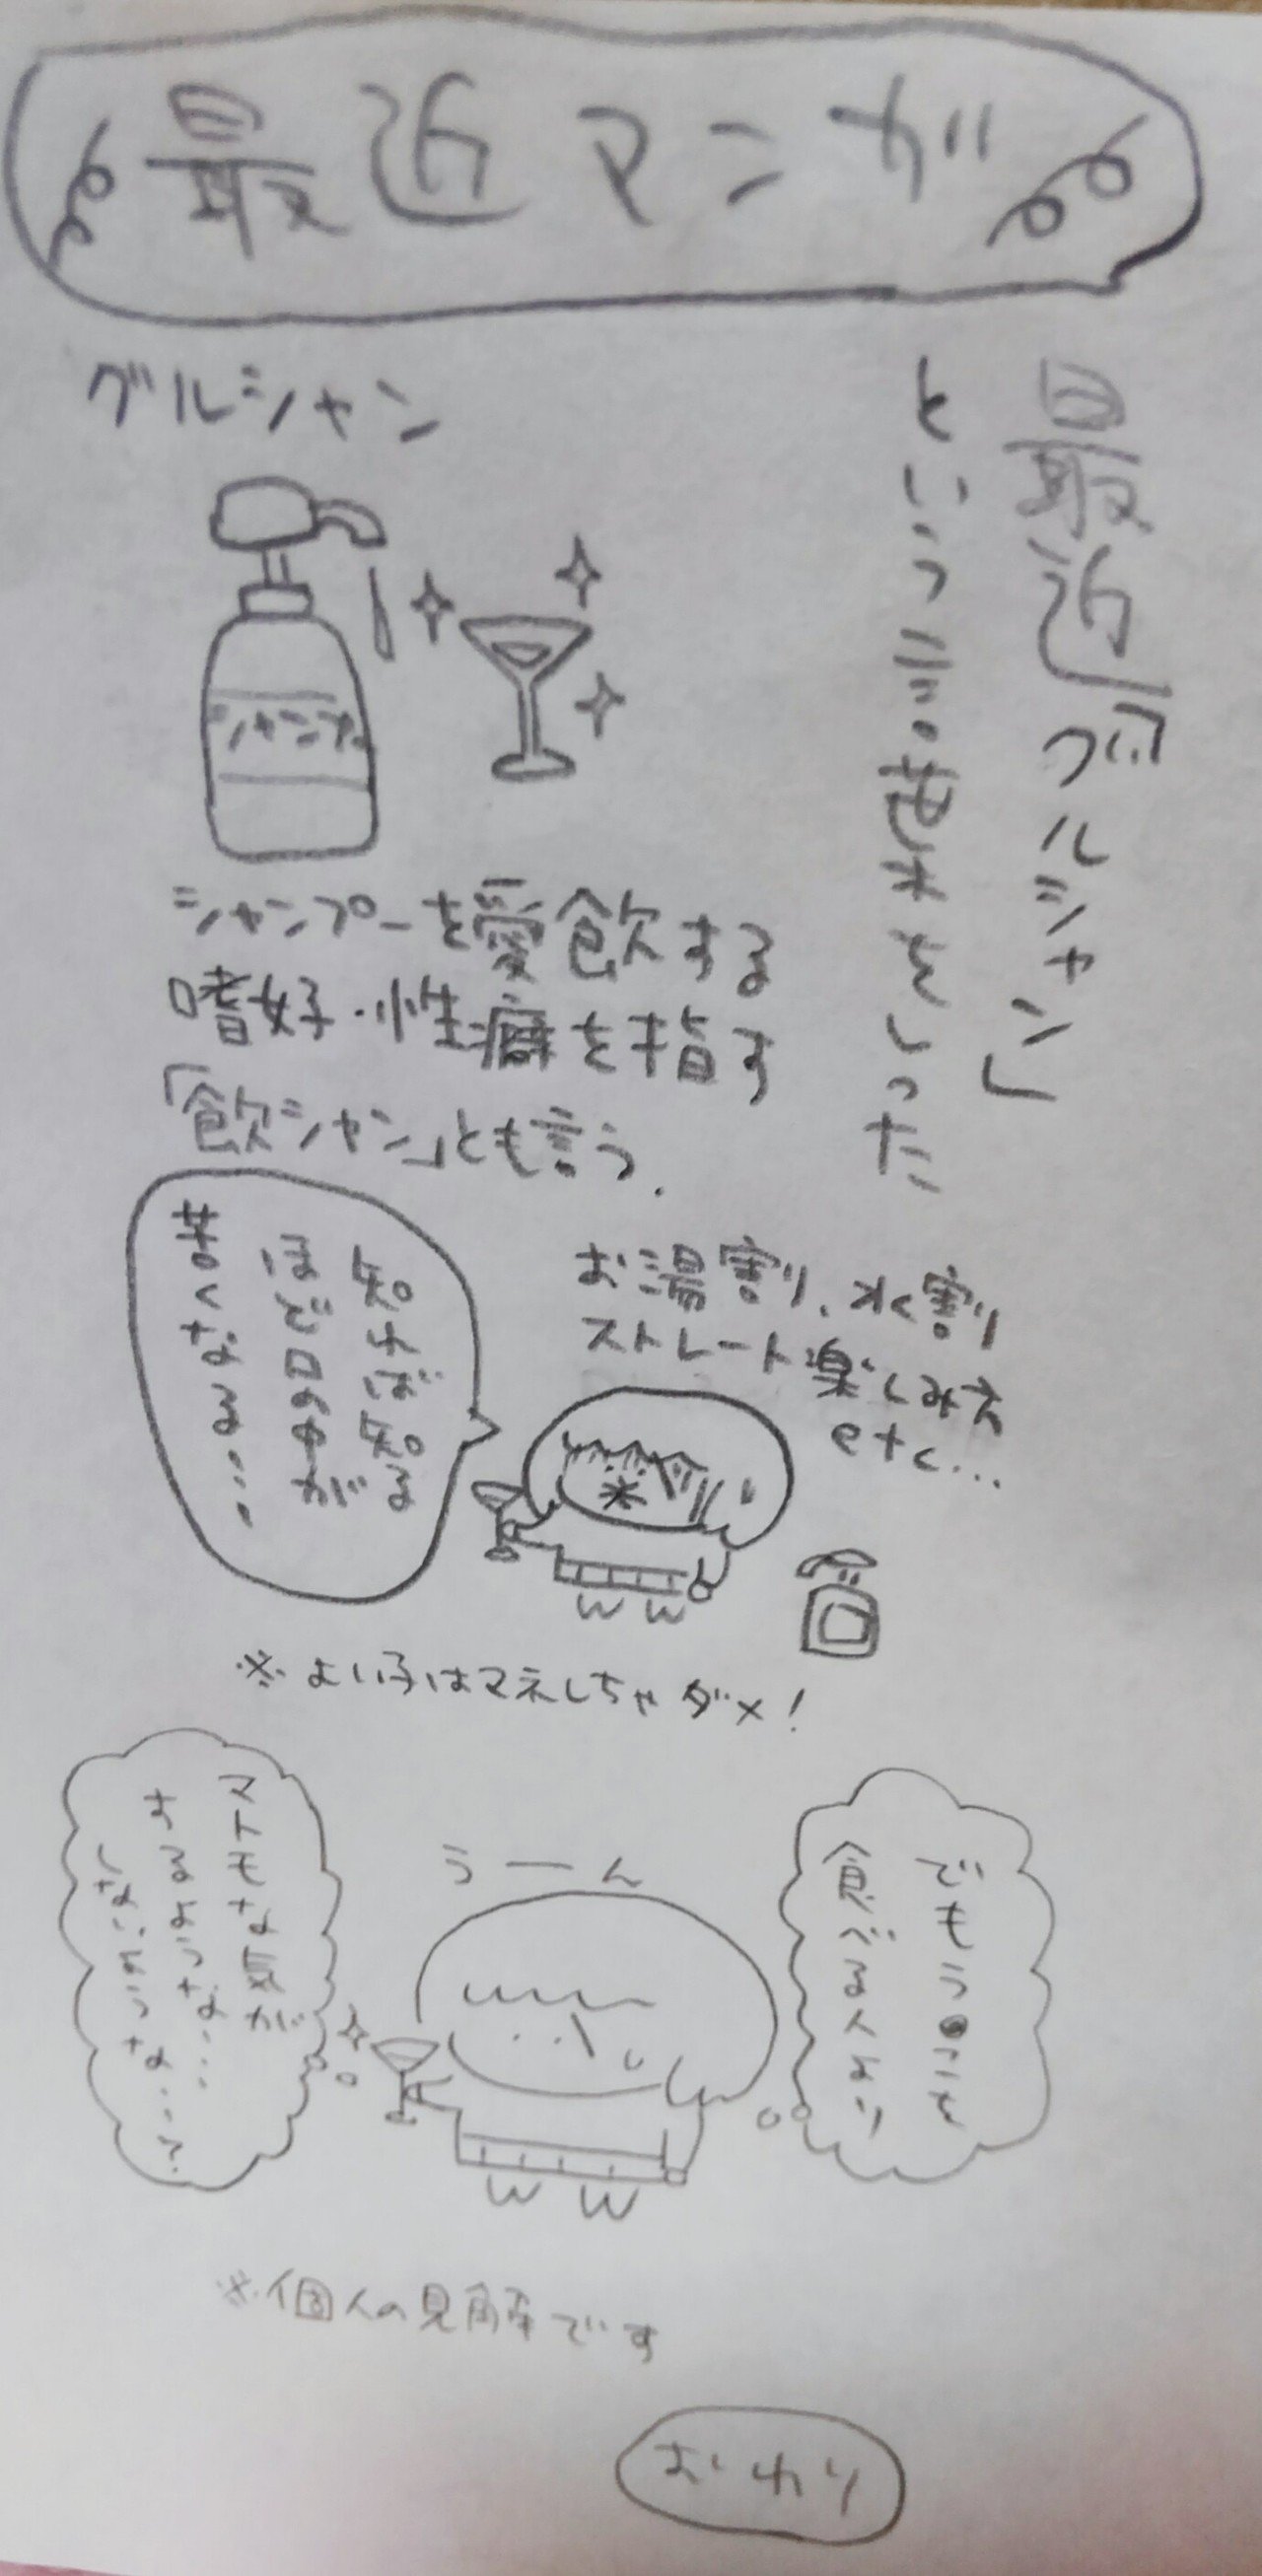 最近マンガ
最近「グルシャン」
という言葉をしった
グルシャン
シャンプー
シャンプーを愛飲する
嗜好・性癖を指す
「飲シャン」とも言う.
お湯割り、水割り
ストレート楽しみ方
etc...
知れば知る
ほど口の中が
苦くなる...
※よい子はマネしちゃダメ!
うーん
でもうんこを
食べる人より
マトモな気が
するような...
しないような...?
※個人の見解です
おわり